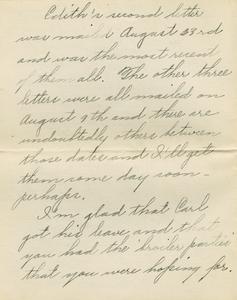 Edith's second letter
was mailed August 23rd
and was the most recent
of them all. The other three
letters were all mailed on
August 9th and there are
undoubtedly others between
those dates and I'll get
them some day soon -
perhaps.
I'm glad that Carl
got his leave and that
you had the broiler parties
that you were hoping for.